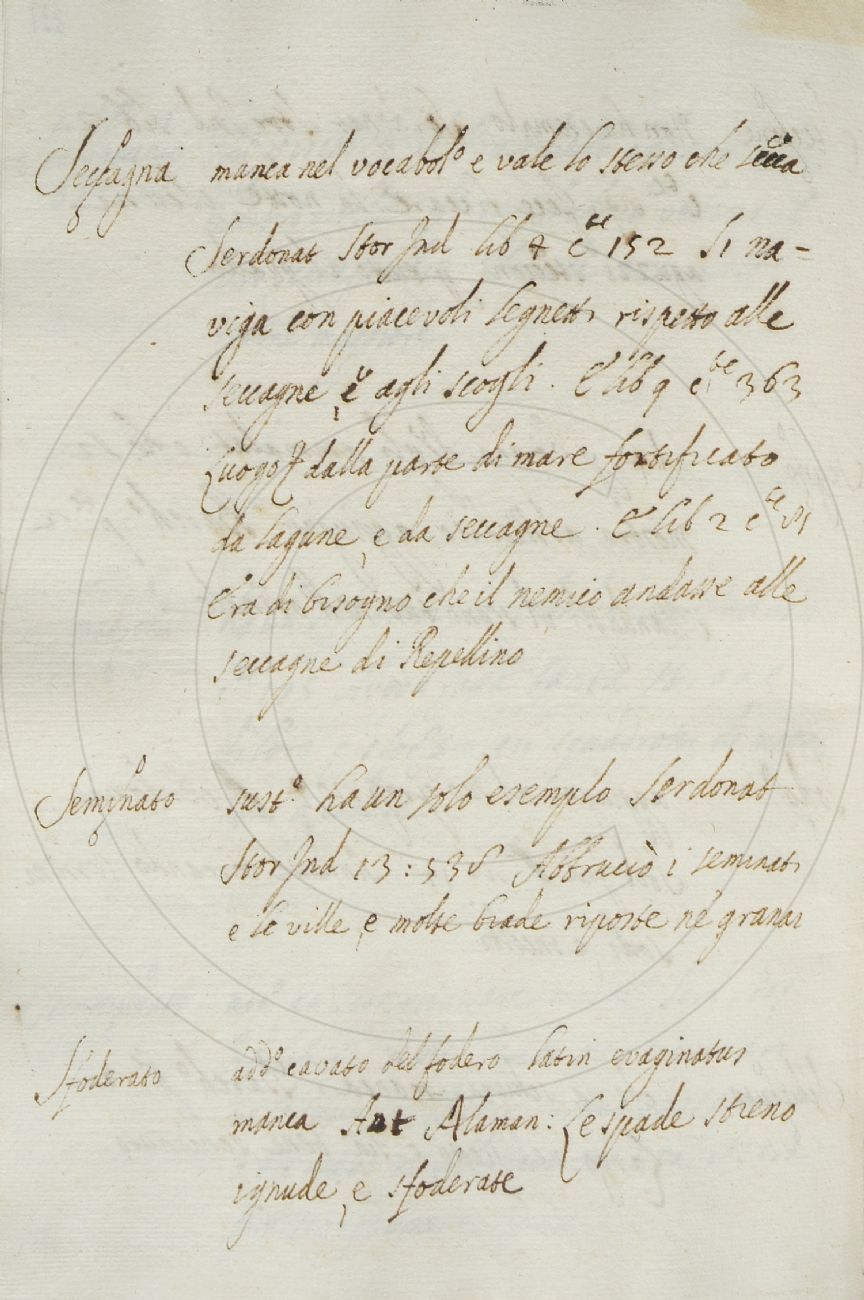 Seccagna manca nel vocabol.o e vale lo stesso che secca
Serdonat Stor Ind lib 4 cte 152 Si na-
viga con piacevoli segnati rispetto alle
seccagne, e agli scogli. E lib 9 cte 363
Luogo dalla parte di mare fortificato
da lagune, e da seccagne. E lib 2 cte
Era di bisogno che il nemico andasse alle
seccagne di Repellino
Seminato sust.o ha un solo esempio Serdonat
Stor Ind 13: 538 Abbruciò i seminati
e le ville, e molte biade riposte ne' granai
Sfoderato add.o cavato del fodero latin evaginatus
manca Ant Alaman: Le spade stieno
ignude, e sfoderate